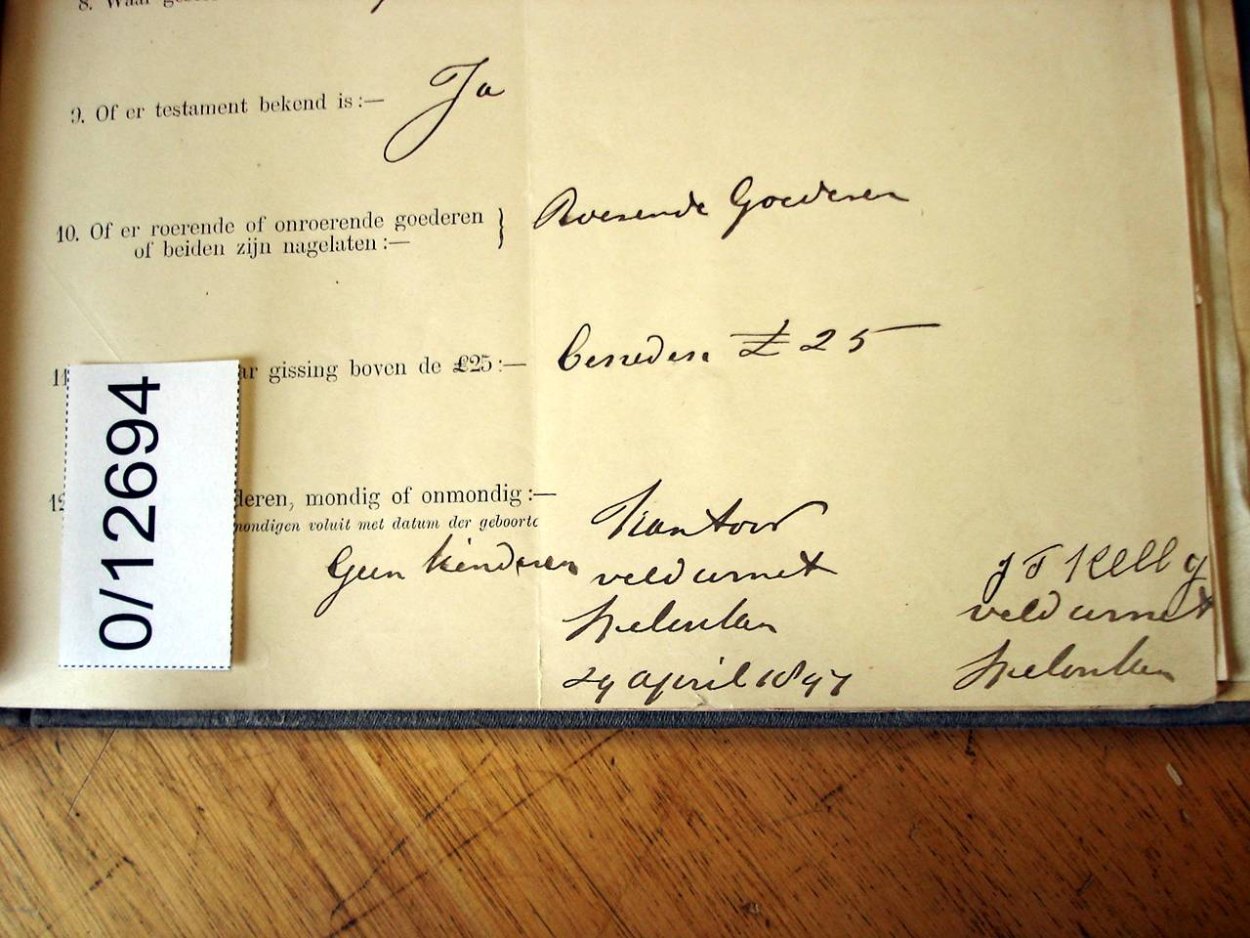 8. Waar
9. Of er testament bekend is :— Ja
10. Of er roerende of onroerende goederen
of beiden zijn nagelaten :— } Roerende Goederen
11 ar gissing boven de £25 :— beneden £ 25
12 deren, mondig of onmondig :—
mondigen voluit met datum der geboorte
Geen kinderen
Kantoor
veldcornet
Spelonken
29 april 1897
J T Kelly
veldcornet
Spelonken
0/12694